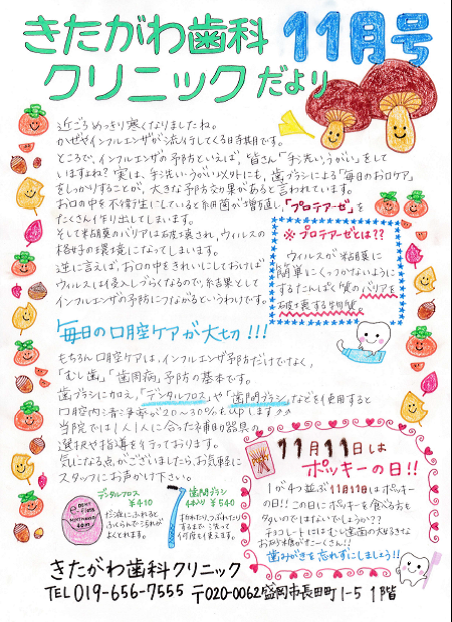 きたがわ歯科
クリニックだより
11月号
近ごろめっきり寒くなりましたね。
かぜやインフルエンザが流行してくる時期です。
ところで、インフルエンザの予防といえば、皆さん「手洗いうがい」をして
いますよね？実は、手洗いうがい以外にも、歯ブラシによる「毎日のお口ケア」
をしっかりすることが、大きな予防効果があると言われています。
お口の中を不衛生にしていると細菌が増殖し、「プロテアーゼ」を
たくさん作り出してしまいます。
そして粘膜のバリアは破壊され、ウィルスの
格好の環境になってしまいます。
逆に言えば、お口の中をきれいにしておけば
ウィルスは侵入しづらくなるので、結果として
インフルエンザの予防につながるというわけです。
※プロテアーゼとは??
ウィルスが粘膜に
簡単にくっつかないように
するたんぱく質のバリアを
破壊する物質
毎日の口腔ケアが大切!!!
もちろん口腔ケアは、インフルエンザ予防だけでなく、
「むし歯」「歯周病」予防の基本です。
歯ブラシに加え、「デンタルフロス」や「歯間ブラシ」などを使用すると
口腔内清浄率が20〜30%もupします
当院では1人1人に合った補助器具の
選択や指導を行っております。
気になる点がございましたら、お気軽に
スタッフにお声がけ下さい。
デンタルフロス
¥410
だ液にふれると
ふくらんでよごれが
よくとれます。
歯間ブラシ
4本入り ¥540
すりきれたり、つぶれたり
するまで、洗って
何度も使えます。
11月11日は
ポッキーの日!!
1が4つ並ぶ11月11日はポッキー
の日!!この日にポッキーを食べる方も
多いのではないでしょうか??
チョコレートにはむし歯菌の大好きな
お砂糖がすごーくたくさん!!
歯みがきを忘れずにしましょう!!
きたがわ歯科クリニック
TEL019-656-7555 〒020-0062盛岡市長田町1-5 1階